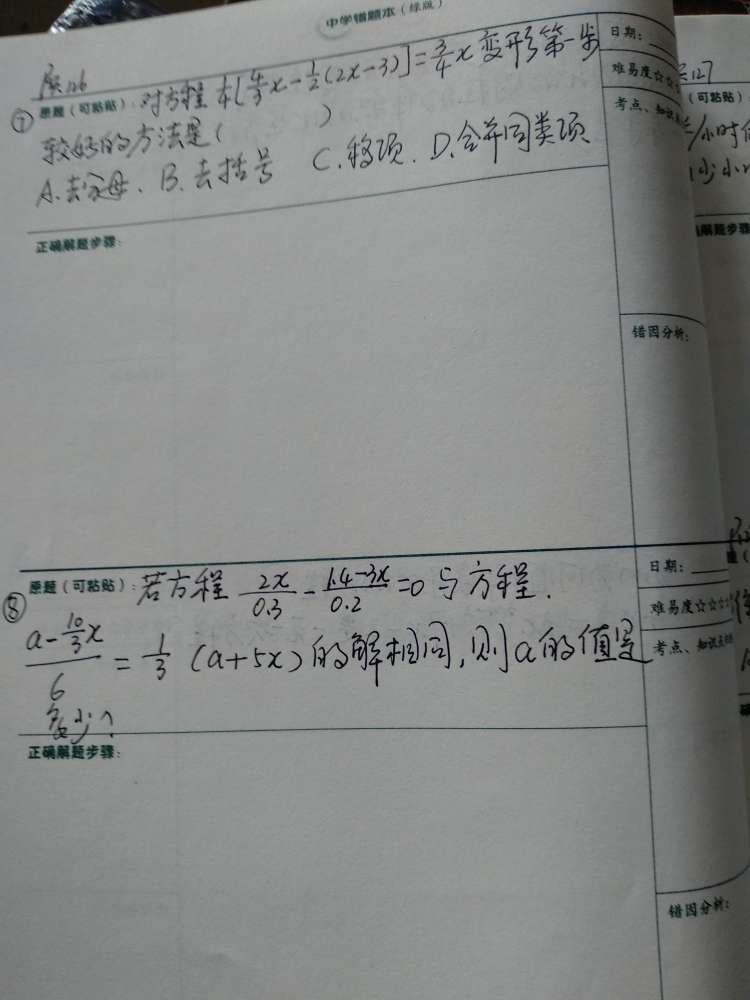 中学错题本（绿版）
原126
⑦ 原题（可粘贴）: 对方程 [4/3x-1/2(2x-3)]=3/4x 变形第一步
较好的方法是( )
A.去分母、B.去括号 C.移项.D.合并同类项
正确解题步骤:
日期:
难易度☆☆
考点、知识
错因分析:
127
（可粘贴）
小时
解题步骤:
⑧ 原题（可粘贴）: 若方程 2x/0.3 - 1.4-3x/0.2 =0 与方程.
a-10/3x/6 = 1/3 (a+5x) 的解相同,则a的值是
多少?
正确解题步骤:
日期:
难易度☆☆☆
考点、知识点
错因分析: